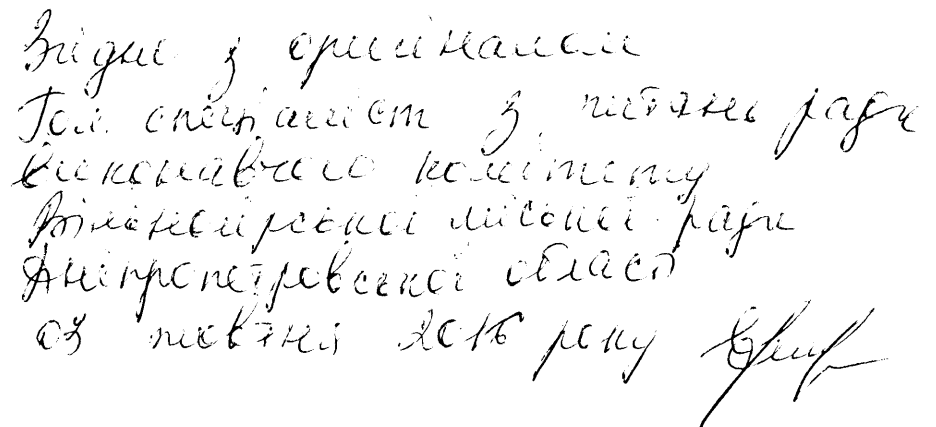 Згідно з оригіналом
Гол. спеціаліст з питань ради
виконавчого комітету
Вільногірської міської ради
Дніпропетровської області
03 жовтня 2016 року